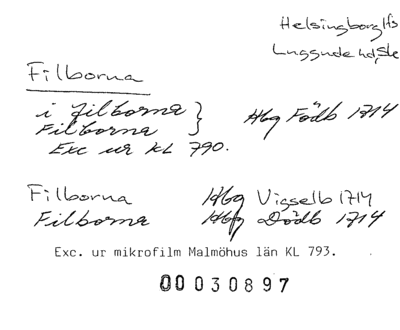 Helsingborg lfs
Luggude hd, Sk
Filborna
i Filborna } Hbg Födb 1714
Filborna
Exc ur KL 790.
Filborna Hbg Vigselb 1714
Filborna Hbg Dödb 1714
Exc. ur mikrofilm Malmöhus län KL 793.
00030897